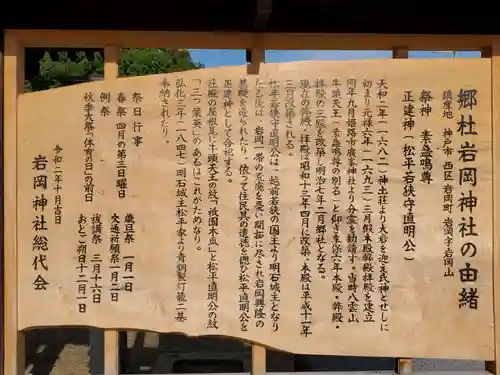 郷社岩岡神社の由緒
鎮座地 神戸市 西区 岩岡町 岩岡字岩岡山
祭神 素盞鳴尊
正建神(松平若狭守直明公)
天和二年(一六八二)神出荘より大岩を迎え氏神とせしに
初まり元禄六年(一六九三)三月假本殿幣殿拝殿を建立
同年九月姫路市廣峯神社より分霊を勧請す。当時八雲山
牛頭天王(素盞鳴尊の別名)と仰ぎ享保六年本殿・幣殿・
拝殿の三殿を改築し明治七年二月郷社となる。
現在の幣殿・拝殿は昭和十三年四月に改築・本殿は平成十一年
三月改築される。
松平若狭守直明公は、越前若狭の国主より明石城主となり
たる後は、岩岡一帯の荒廃を憂い開拓に尽され岩岡興隆の
基礎を成られたり、依って住民其の遺徳を偲び松平直明公を
正建神として合祀する。
社殿の屋根瓦に牛頭天王の紋「祇園木瓜」と松平直明公の紋
「三つ葉葵」のあるはこれがためなり。
弘化三年(一八四七)明石城主松平家より青銅製灯籠一基
奉納されたり。
祭日行事
例祭 歳旦祭 一月一日
春祭 四月の第三日曜日 交通祈願祭 一月二日
秋季大祭「体育の日」の前日 祓講祭 三月十六日
おとご朔日 十二月一日
令和二年十月吉日
岩岡神社総代会